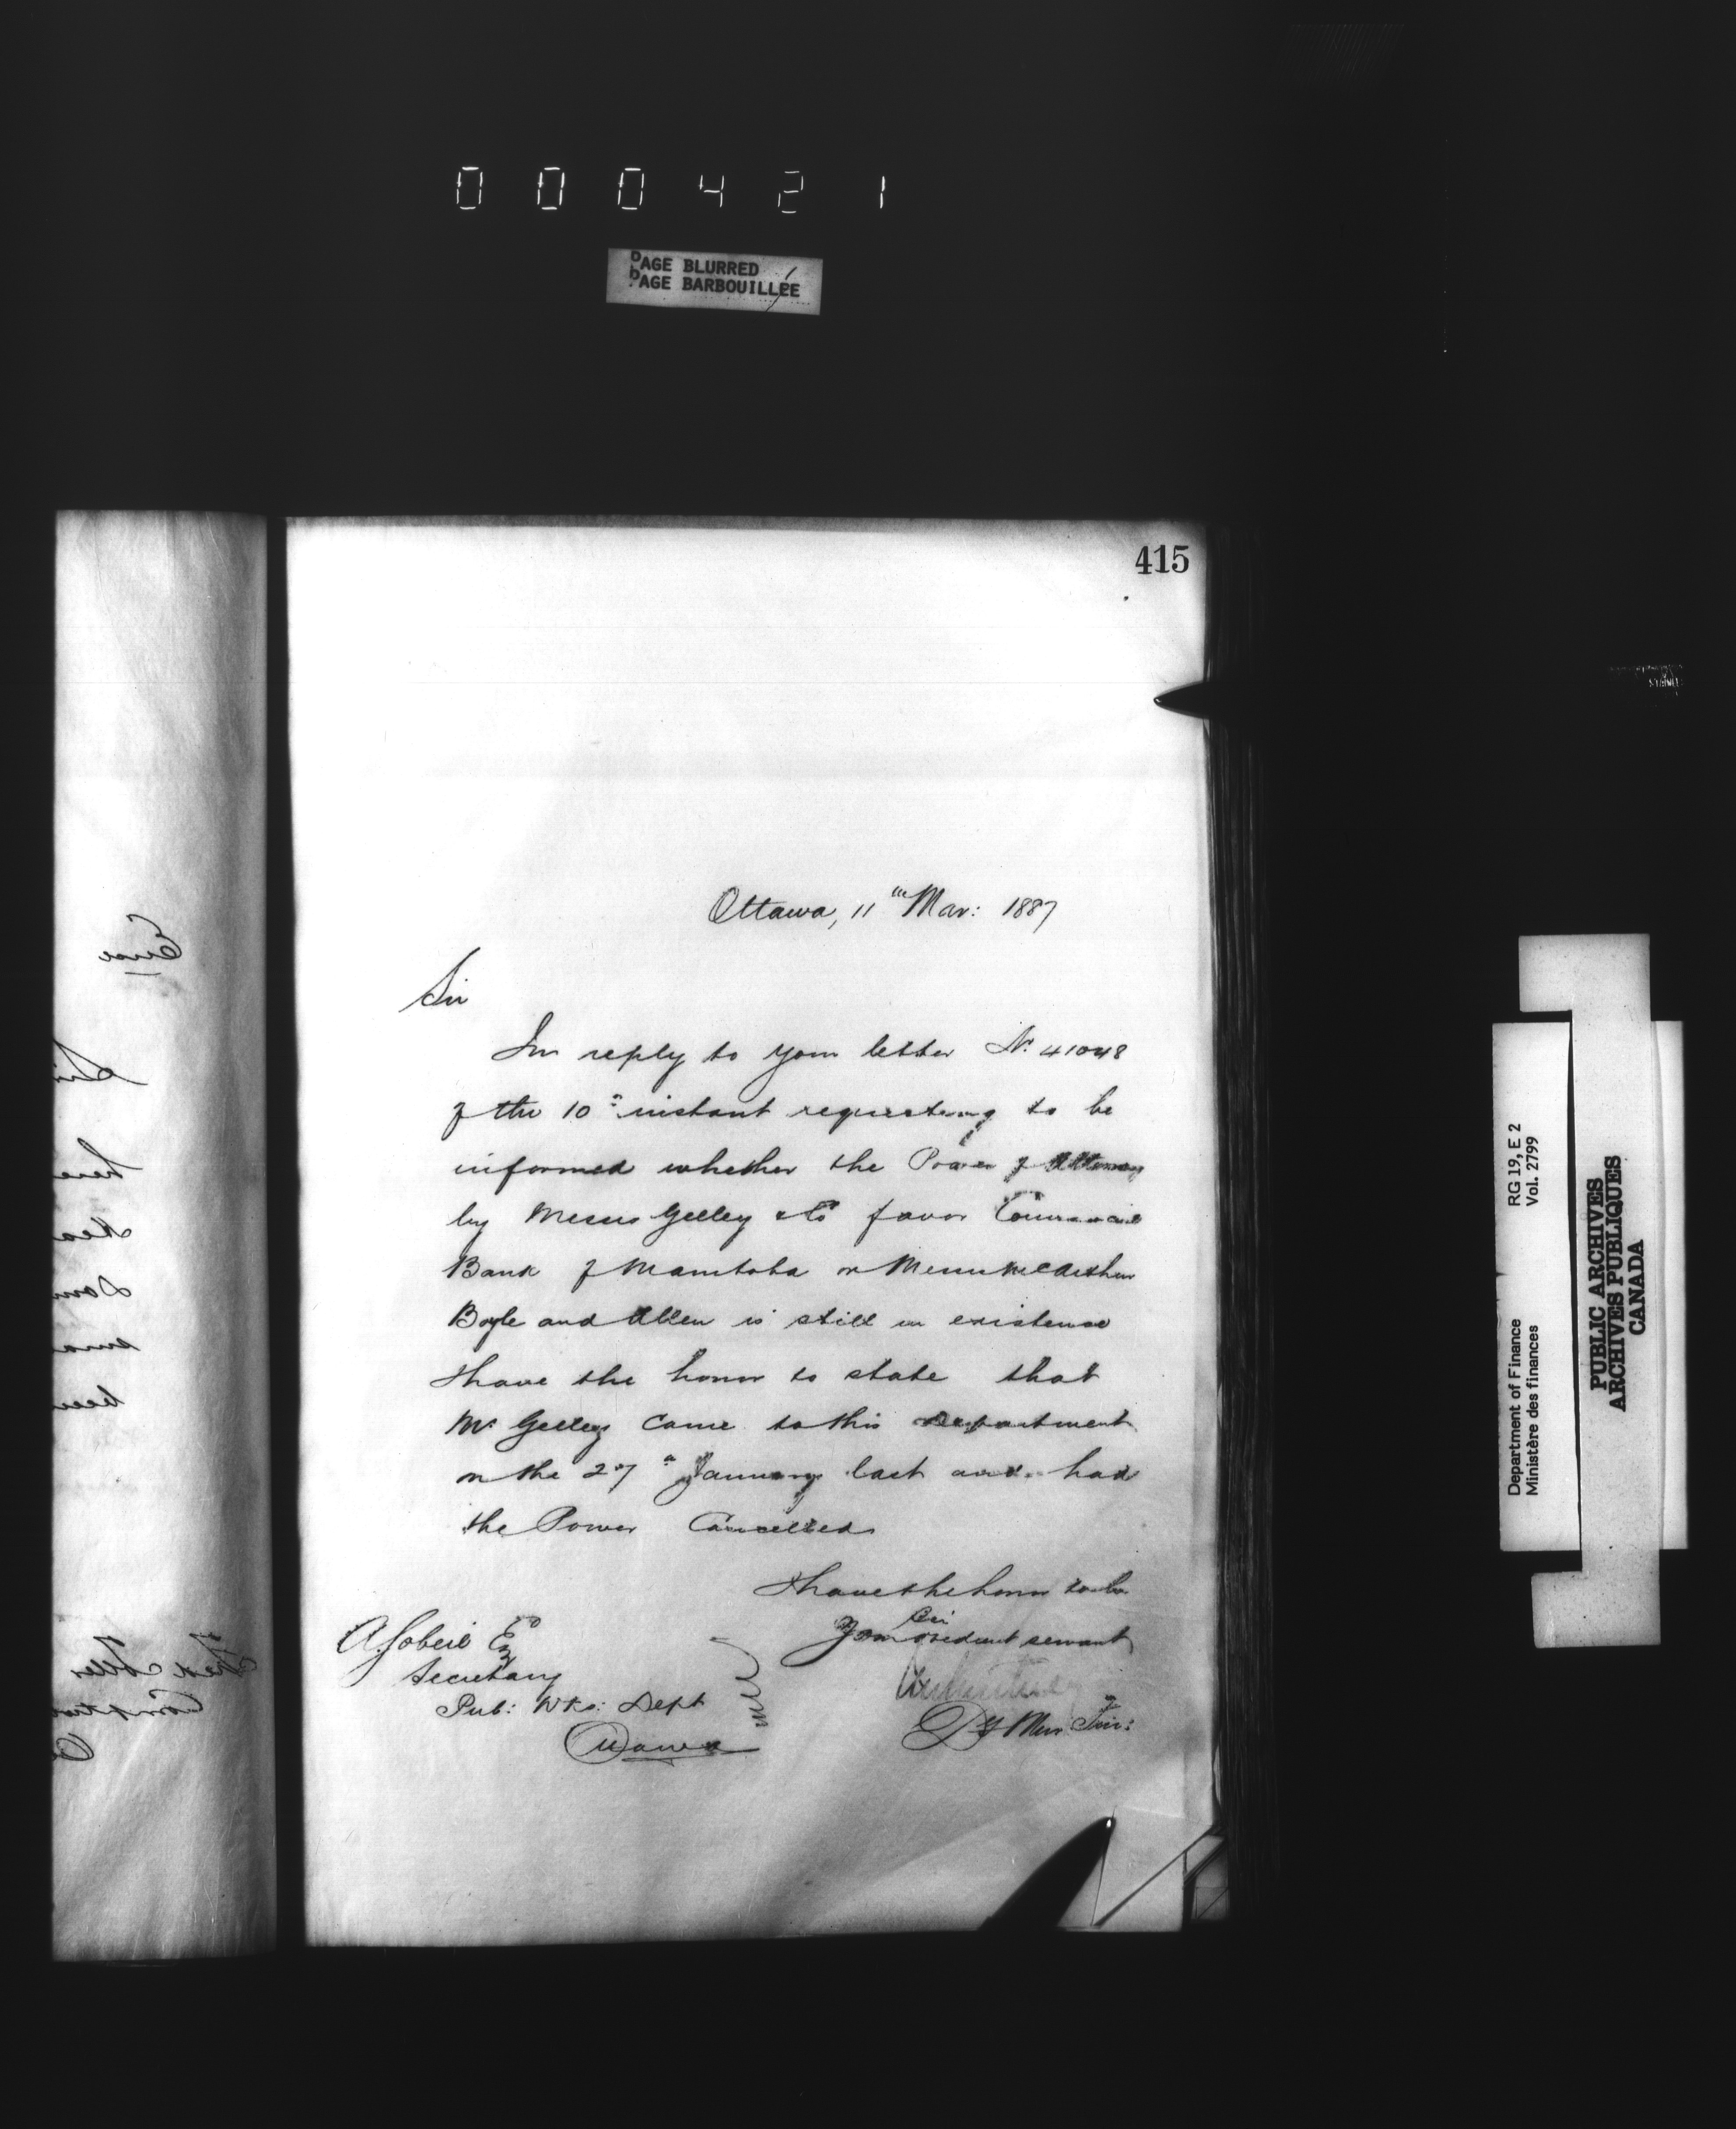 000421
PAGE BLURRED
PAGE BARBOUILLÉE
415
Ottawa, 11th Mar: 1887
Sir
In reply to your letter No. 41048
of the 10th instant requesting to be
informed whether the Power of Attorney
by Messrs Geeley & Co favor Commercial
Bank of Manitoba or Messrs McArthur
Boyle and Allen is still in existence
I have the honor to state that
Mr Geeley came to this Department
on the 27th January last and had
the Power Cancelled
I have the honor to be
Sir
Your obedient servant
Dy Min Fin:
A. Gobeil Esq
Secretary
Pub: Wks: Dept
Ottawa
RG 19, E 2
Vol. 2799
Department of Finance
Ministère des finances
PUBLIC ARCHIVES
ARCHIVES PUBLIQUES
CANADA